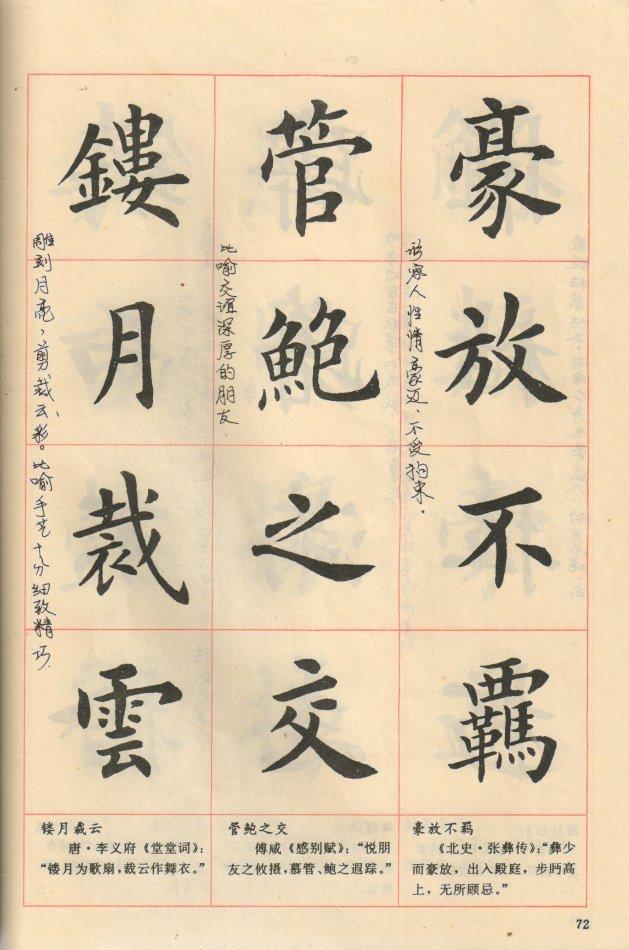 豪放不羈
形容人性情豪迈、不受拘束.
管鮑之交
比喻交谊深厚的朋友.
鏤月裁雲
雕刻月亮,剪裁云彩。比喻手艺十分细致精巧.
豪放不羁
《北史·张彝传》:“彝少
而豪放,出入殿庭,步眄高
上,无所顾忌。”
管鲍之交
傅咸《感别赋》:“悦朋
友之攸摄,慕管、鲍之遐踪。”
镂月裁云
唐·李义府《堂堂词》:
“镂月为歌扇,裁云作舞衣。”
72